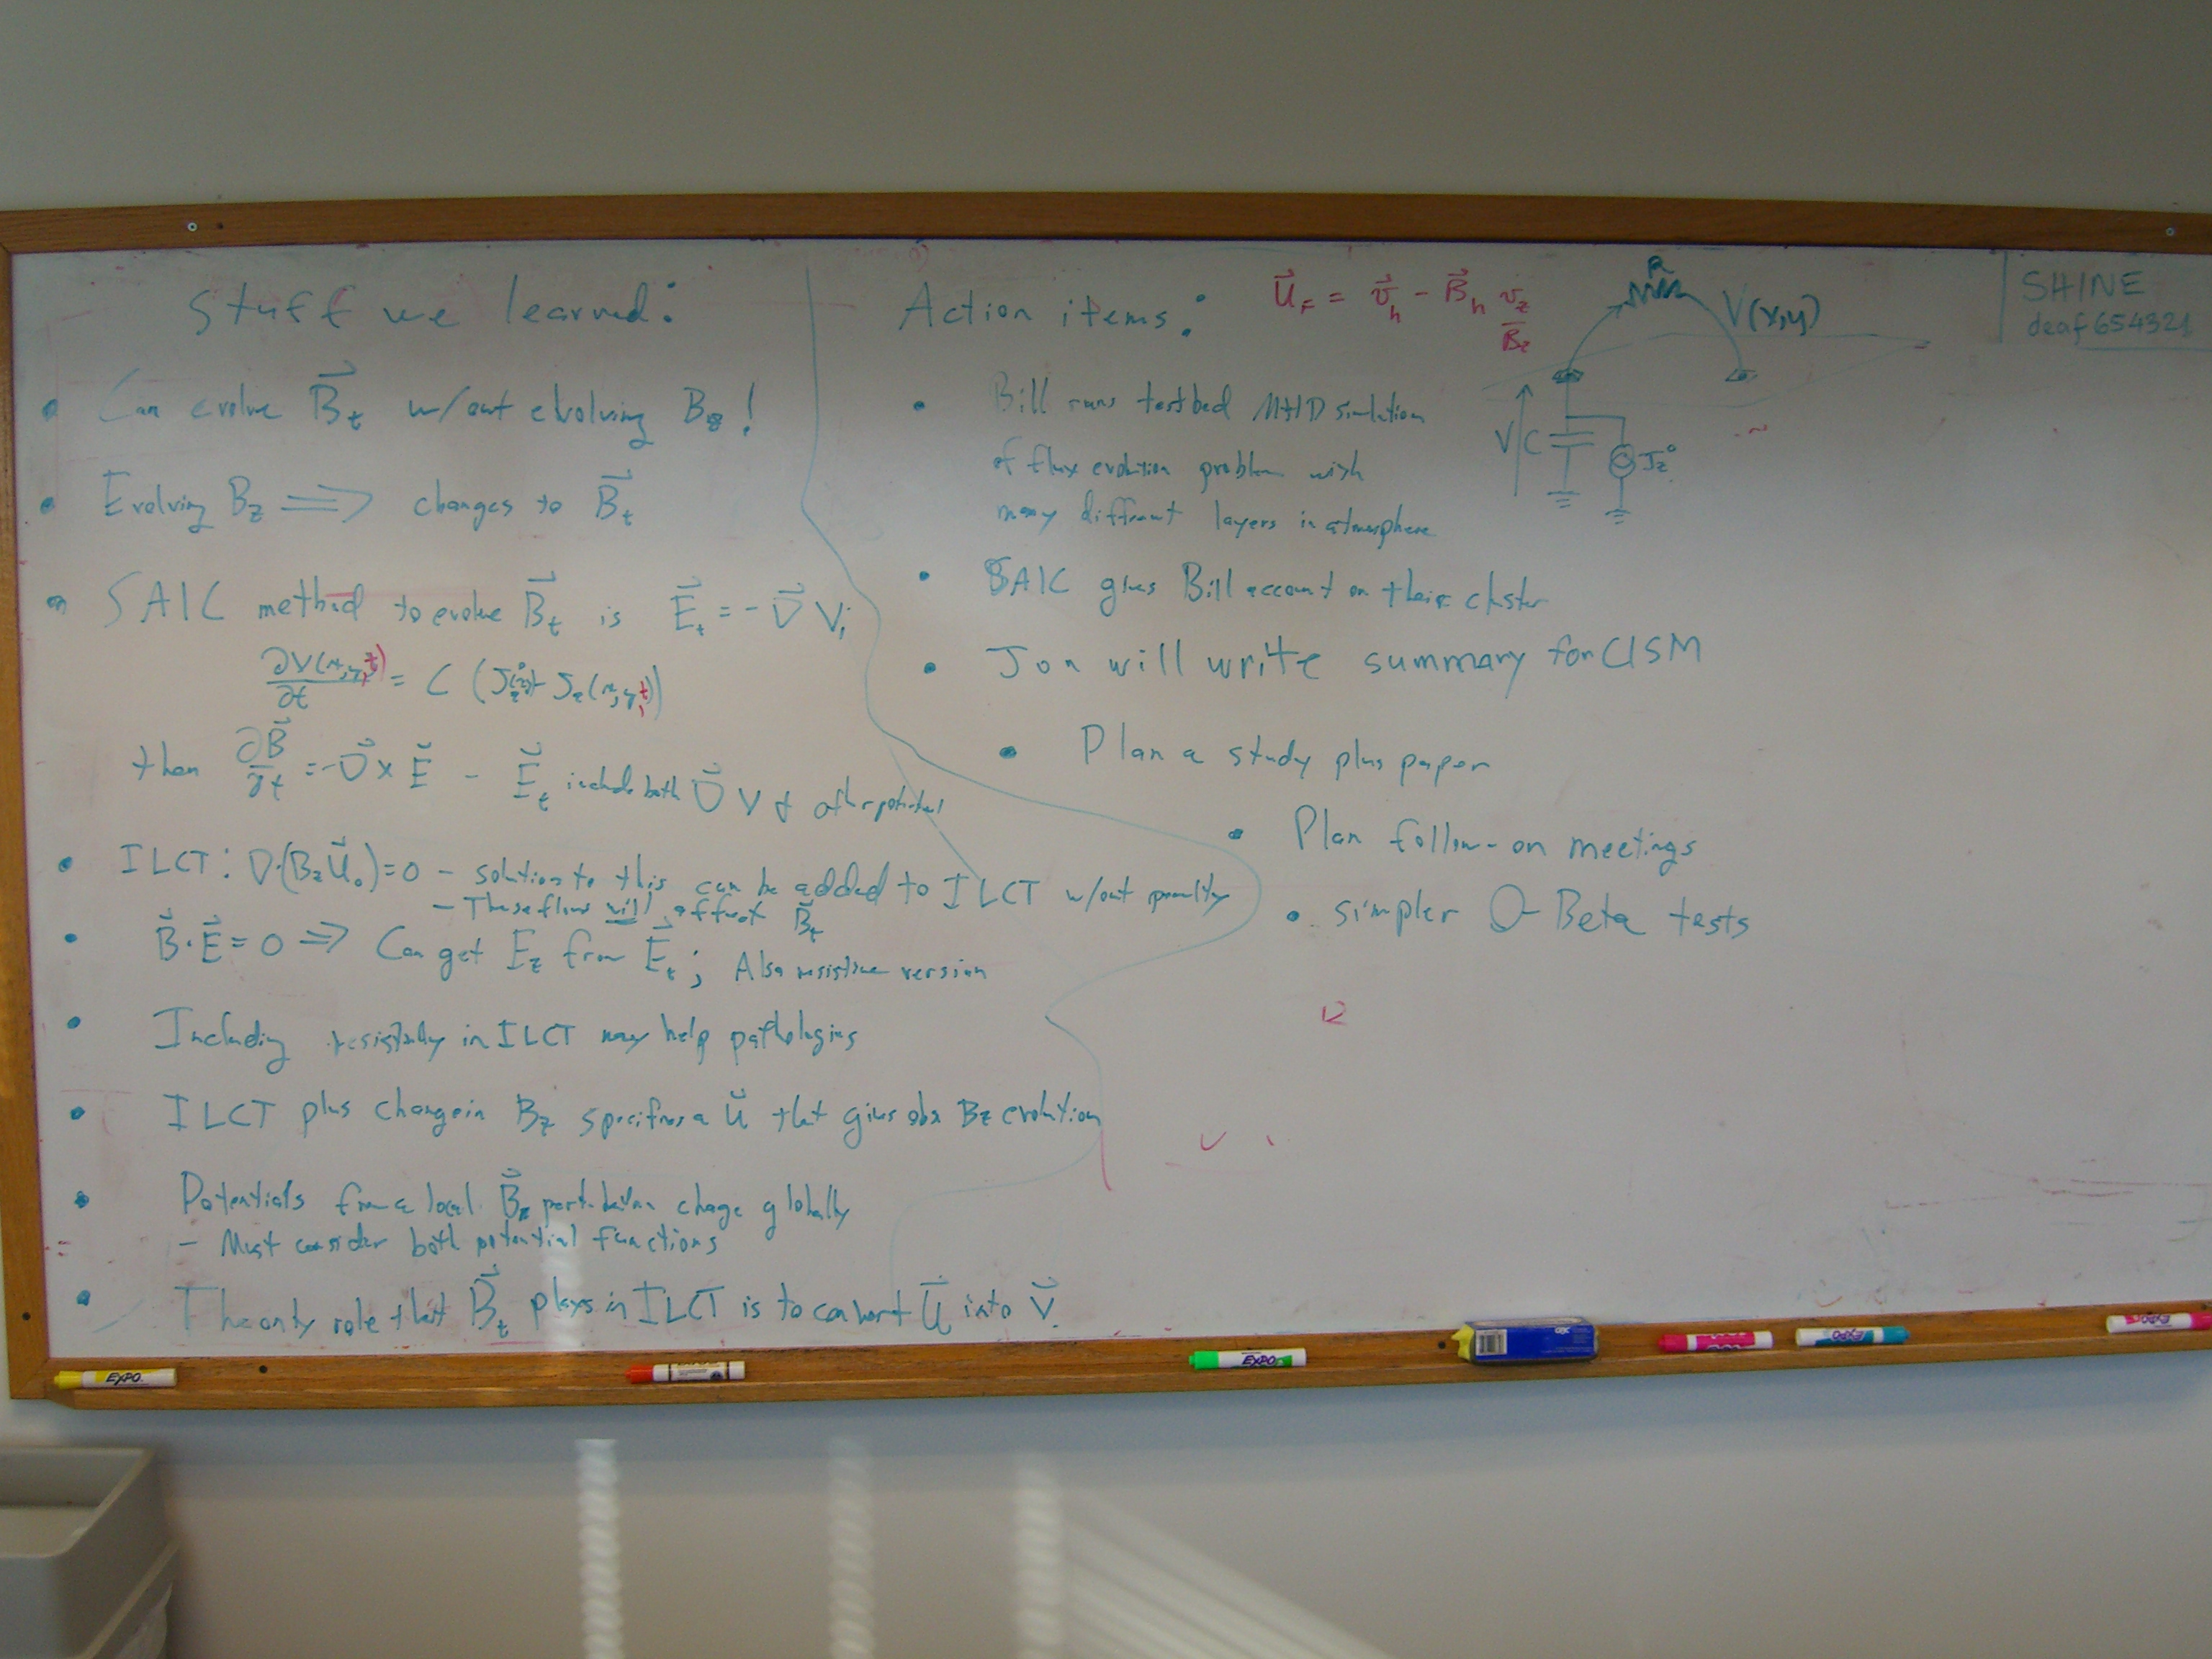 Stuff we learned:
• Can evolve B⃗t w/out evolving Bz!
• Evolving Bz ⟹ changes to B⃗t
• SAIC method to evolve B⃗t is E⃗t = -∇⃗ V;
∂V(x,y,t)/∂t = C (Jz⁰ - Jz(x,y,t))
then ∂B⃗/∂t = -∇⃗ x E⃗ - E⃗t include both ∇⃗ V & other potential
• ILCT: ∇·(Bz U⃗o) = 0 - solution to this can be added to ILCT w/out penalty
- These flows will affect B⃗t
• B⃗·E⃗ = 0 ⟹ Can get Ez from E⃗t; Also resistive version
• Including resistivity in ILCT may help pathologies
• ILCT plus change in Bz specifies a u⃗ that gives obs Bz evolution
• Potentials from a local B⃗z perturbation change globally
- Must consider both potential functions
• The only role that B⃗t plays in ILCT is to convert U⃗ into V⃗.
Action items:
U⃗F = v⃗h - B⃗h vz/Bz
• Bill runs testbed MHD simulation
of flux evolution problem with
many different layers in atmosphere
• SAIC gives Bill account on their cluster
• Jon will write summary for CISM
• Plan a study plus paper
• Plan follow-on meetings
• simpler 0-Beta tests
R
V(x,y)
V C Jz⁰
SHINE
deaf654321
EXPO
EXPO
EXPO
EXPO